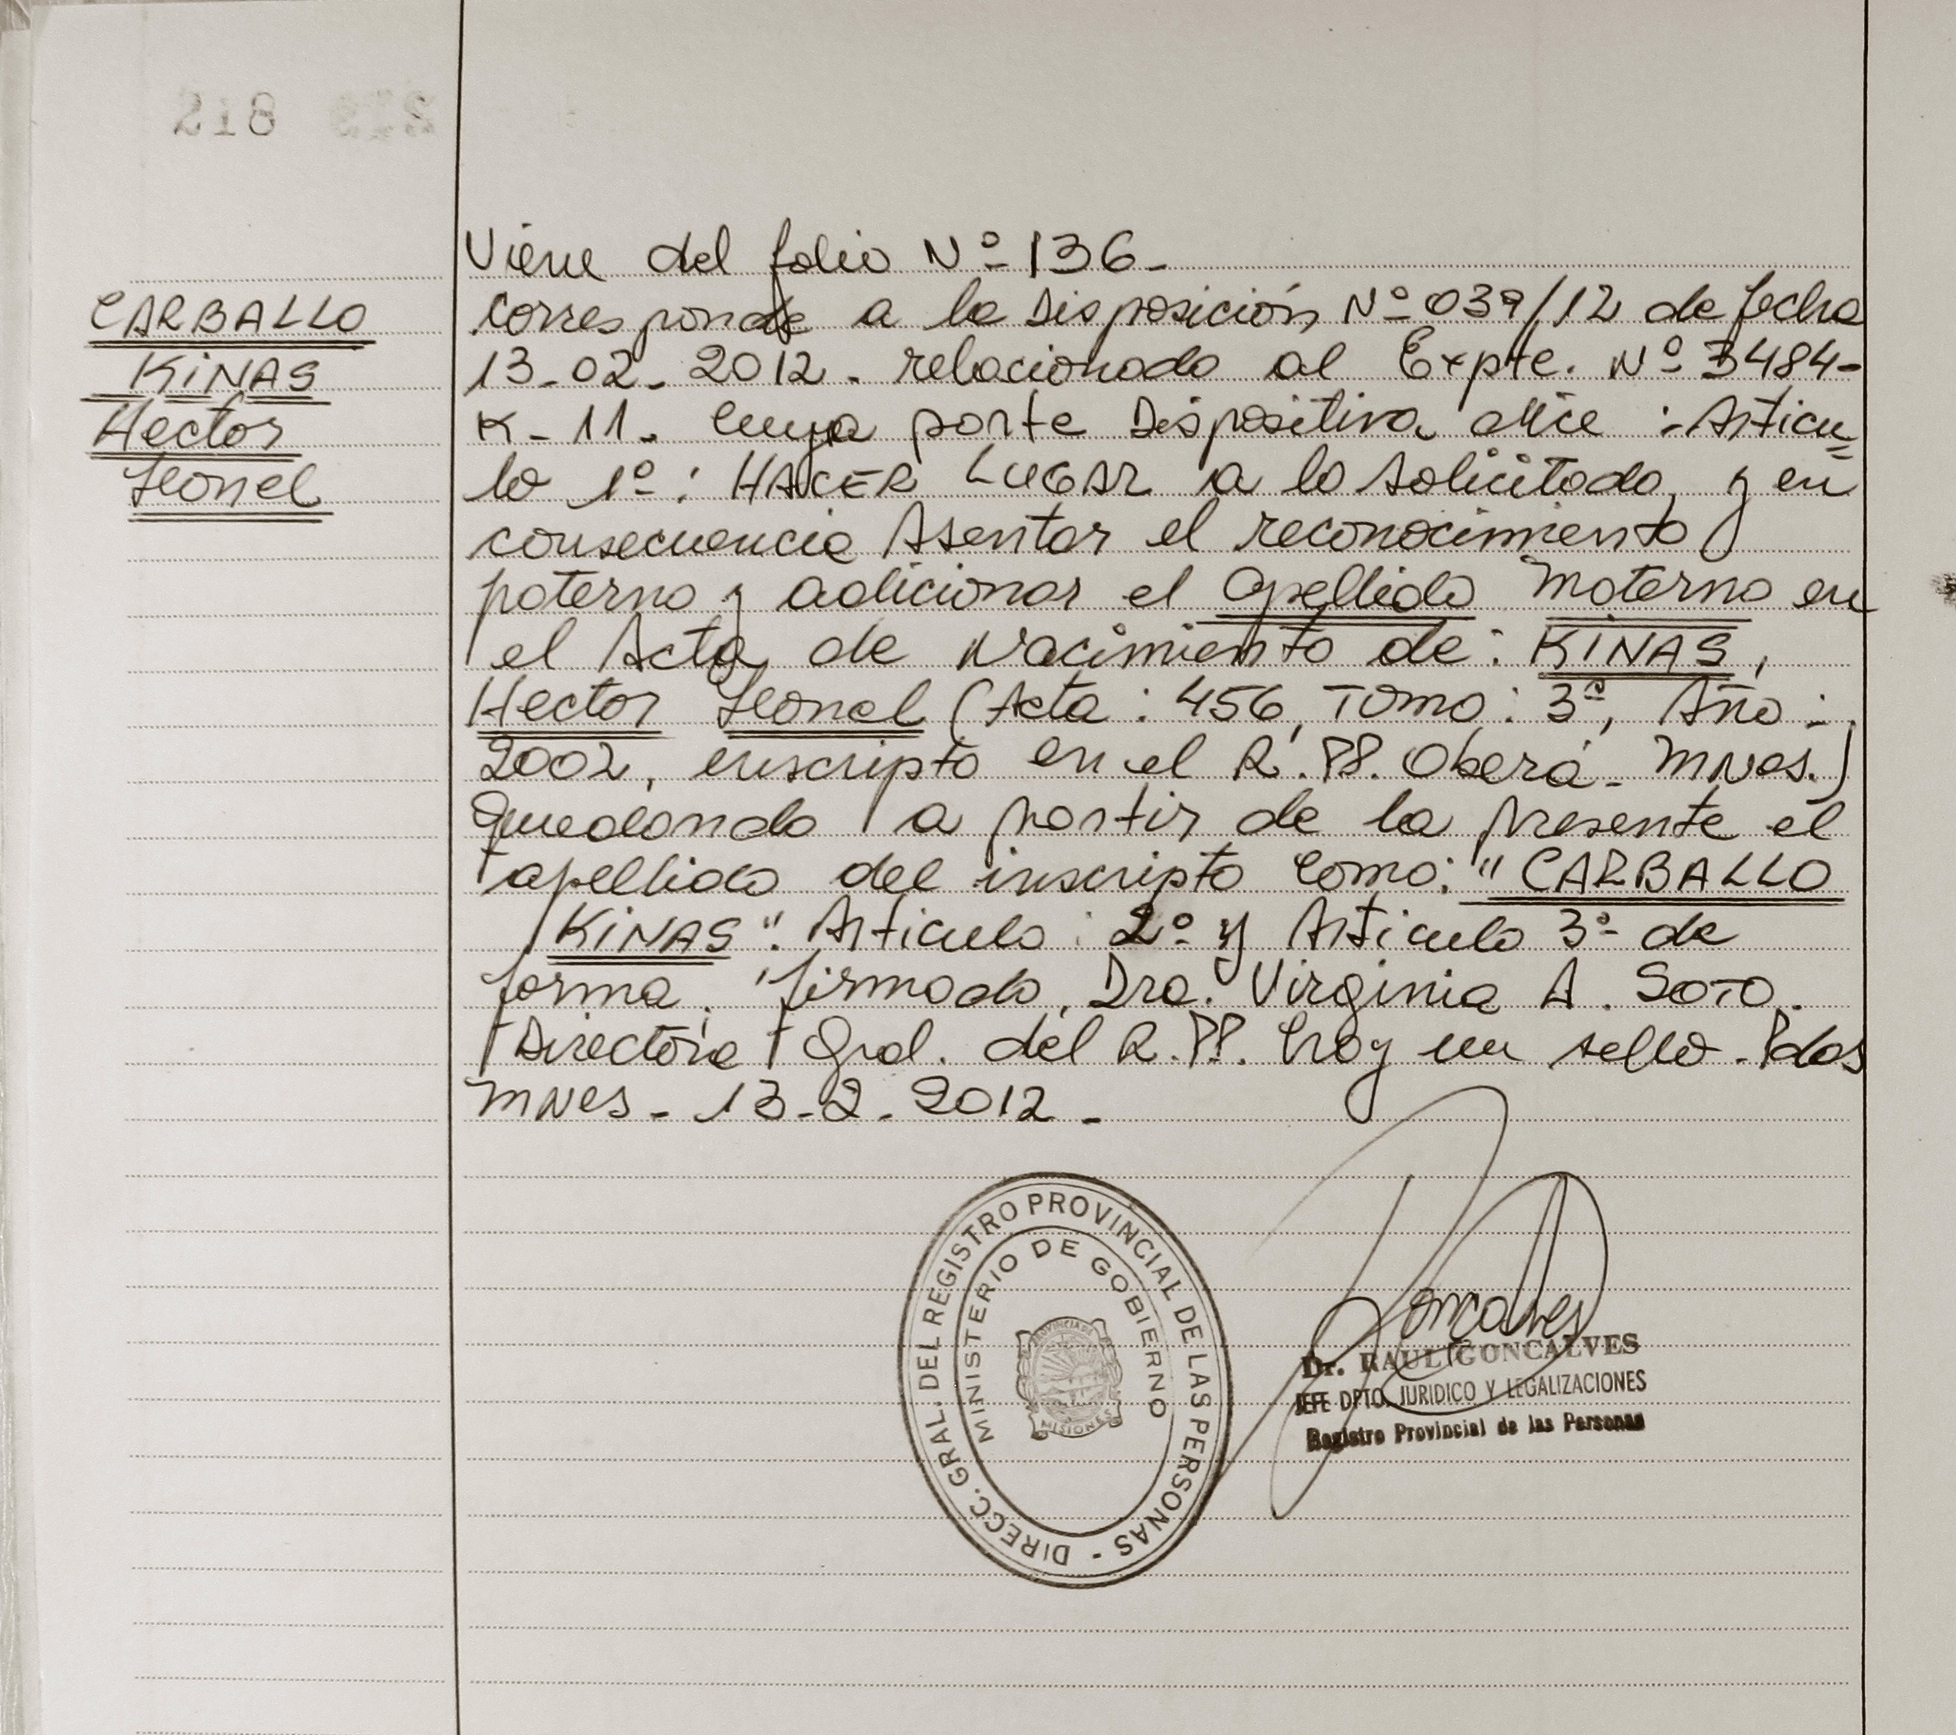 218
CARBALLO
KINAS
Hector
Leonel
Viene del folio Nº 136-
Corresponde a la Disposición Nº 039/12 de fecha
13-02-2012. relacionado al Expte. Nº 3484-
K-11. Cuya parte Dispositiva dice: Articu=
lo 1º: HACER LUGAR a lo solicitado, y en
consecuencia Asentar el reconocimiento
paterno y adicionar el apellido Materno en
el Acta de Nacimiento de: KINAS,
Hector Leonel (Acta: 456, Tomo: 3º, Año:
2002, inscripto en el R.PP. Oberá- Mnes.)
Quedando a partir de la presente el
apellido del inscripto Como: "CARBALLO
KINAS". Articulo: 2º y Articulo 3º de
forma. firmado, Dra. Virginia A. SOTO.
Directora Gral. del R.PP. hay un sello. Pdas
Mnes- 13-2-2012-
DIRECC. GRAL. DEL REGISTRO PROVINCIAL DE LAS PERSONAS -
MINISTERIO DE GOBIERNO
PROVINCIA DE
MISIONES
Goncalves
Dr. RAUL GONCALVES
JEFE DPTO. JURIDICO Y LEGALIZACIONES
Registro Provincial de las Personas